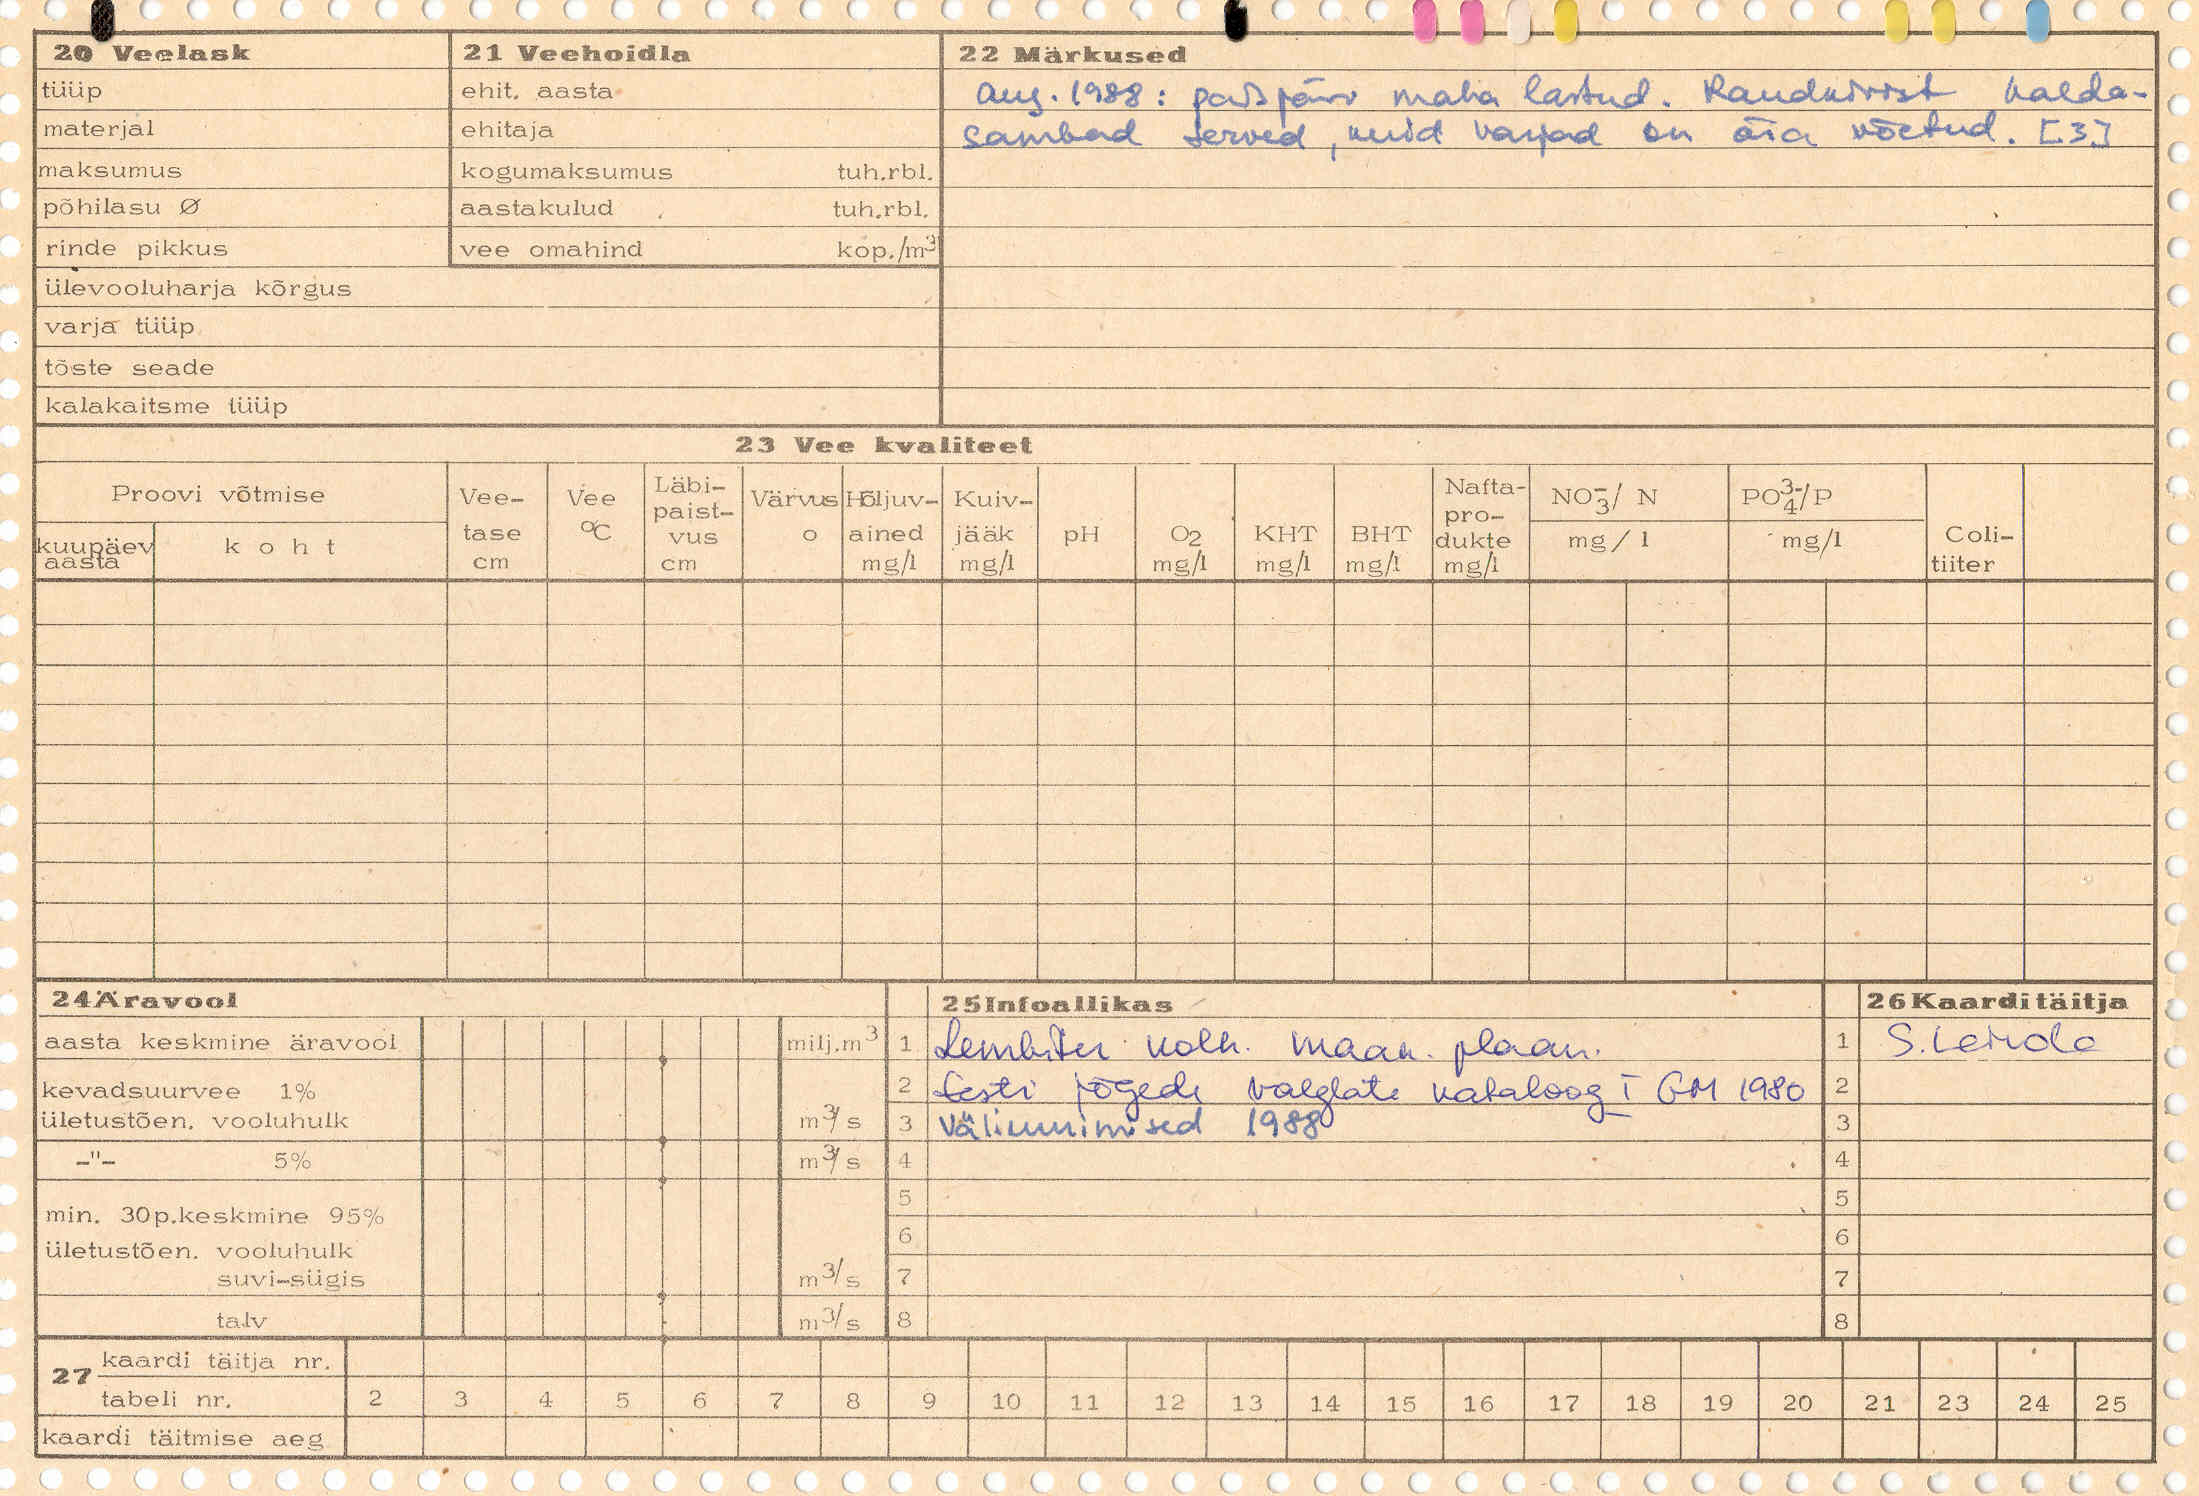 20 Veelask
tüüp
materjal
maksumus
põhilasu Ø
rinde pikkus
ülevooluharja kõrgus
varja tüüp
tõste seade
kalakaitsme tüüp
21 Veehoidla
ehit. aasta
ehitaja
kogumaksumus tuh.rbl.
aastakulud tuh.rbl.
vee omahind kop./m³
22 Märkused
aug. 1988: paisjärv maha lastud. Raudkivist kalda-
sambad terved, kuid varjad on ära võetud. [3]
23 Vee kvaliteet
Proovi võtmise
kuupäev aasta
koht
Vee-
tase
cm
Vee
°C
Läbi-
paist-
vus
cm
Värvus
o
Hõljuv-
ained
mg/l
Kuiv-
jääk
mg/l
pH
O2
mg/l
KHT
mg/l
BHT
mg/l
Nafta-
pro-
dukte
mg/l
NO3-/ N
mg/l
PO4 3-/P
mg/l
Coli-
tiiter
24 Äravool
aasta keskmine äravool milj.m³
kevadsuurvee 1%
ületustõen. vooluhulk m³/s
-"- 5% m³/s
min. 30p.keskmine 95%
ületustõen. vooluhulk
suvi-sügis m³/s
talv m³/s
25 Infoallikas
1 Lembitu kolh. maak. plaan.
2 Eesti jõgede valglate kataloog I GM 1980
3 Väliuurimised 1988
4
5
6
7
8
26 Kaardi täitja
1 S. Leirda
2
3
4
5
6
7
8
27 kaardi täitja nr.
tabeli nr. 2 3 4 5 6 7 8 9 10 11 12 13 14 15 16 17 18 19 20 21 23 24 25
kaardi täitmise aeg